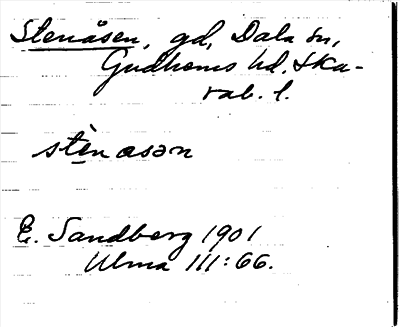 Stenåsen, gd, Dala sn,
Gudhems hd, Ska-
rab. l.
stènasən
E. Sandberg 1901
Ulma 111:66.